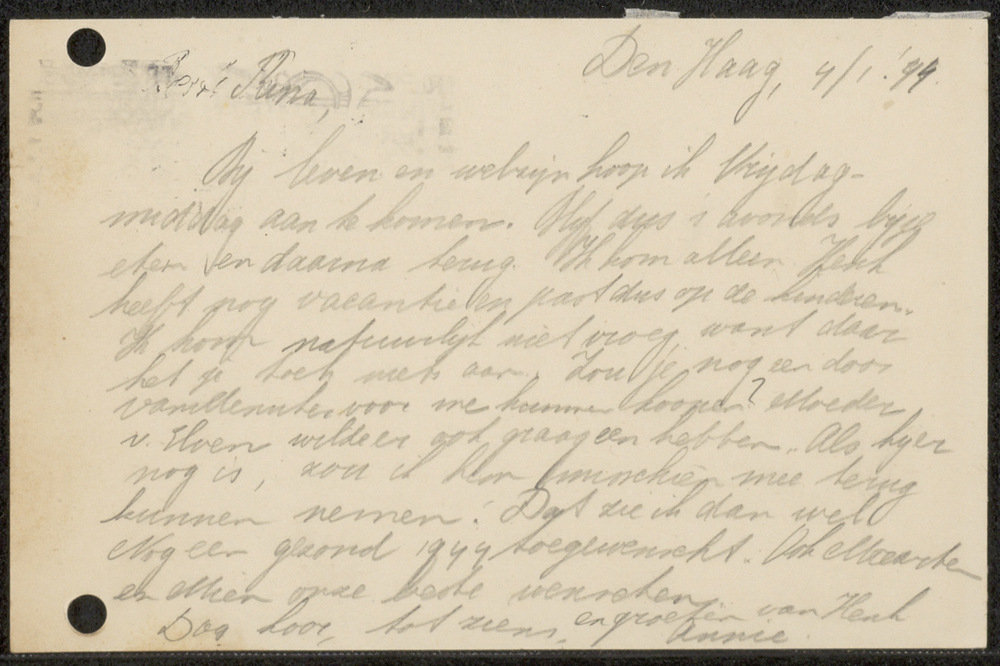 Den Haag, 4/1.'44.
Beste Rina,
Bij leven en welzijn hoop ik Vrijdag-
middag aan te komen. Blijf dus 's avonds bij je
eten en daarna terug. Ik kom alleen. Henk
heeft nog vacantie en past dus op de kinderen.
Ik kom natuurlijk niet vroeg want daar
heb je toch niets aan. Zou je nog een doos
voor me kunnen koopen? Moeder
v. Elven wilde er ook graag een hebben. Als hij er
nog is, zou ik hem misschien mee terug
kunnen nemen. Dat zie ik dan wel
Nog een gezond 1944 toegewenscht. Ook Maarten
en Mien onze beste wenschen
Dag hoor, tot ziens, en groeten van Henk
Annie.